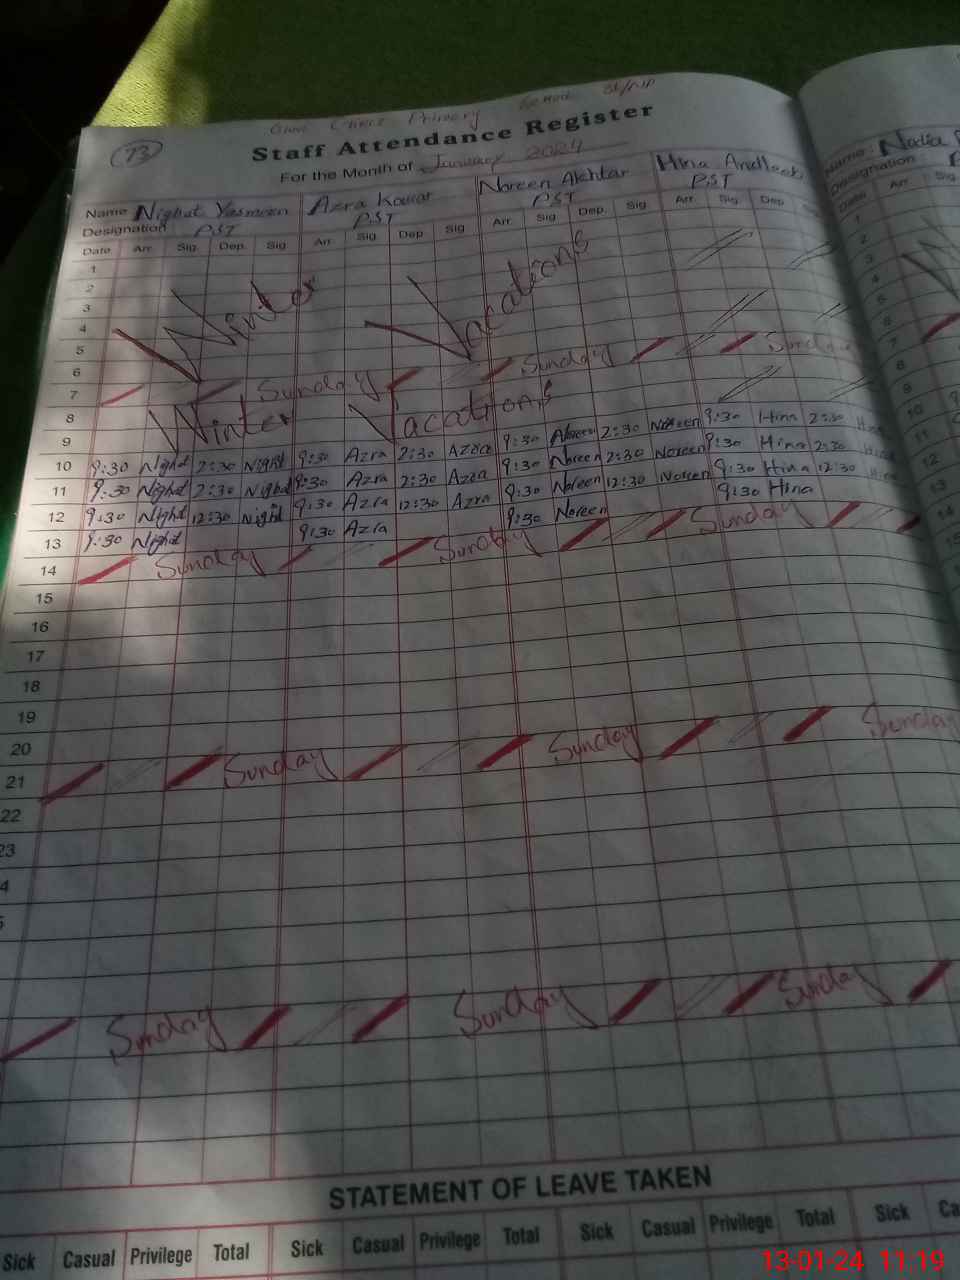 73
Govt Girls Primary School
Staff Attendance Register
For the Month of January 2024
Name Nighat Yasmeen Azra Kowsar Noreen Akhtar Hina Andleeb Name Nadia
Designation PST PST PST PST Designation
Date Arr. Sig. Dep. Sig Arr. Sig. Dep. Sig Arr. Sig. Dep. Sig Arr. Sig. Dep Date Arr. Sig
1 1
2 2
3 Winter Vacations 3
4 4
5 5
6 6
7 Sunday Sunday Sunday 7
8 Winter Vacations 8
9 9
10 9:30 Nighat 2:30 Nighat 9:30 Azra 2:30 Azra 9:30 Noreen 2:30 Noreen 9:30 Hina 2:30 Hina 10
11 9:30 Nighat 2:30 Nighat 9:30 Azra 2:30 Azra 9:30 Noreen 2:30 Noreen 9:30 Hina 2:30 Hina 11
12 9:30 Nighat 12:30 Nighat 9:30 Azra 12:30 Azra 9:30 Noreen 12:30 Noreen 9:30 Hina 12:30 Hina 12
13 9:30 Nighat 9:30 Azra 9:30 Noreen 9:30 Hina 13
14 Sunday Sunday Sunday 14
15
16
17
18
19
20
21 Sunday Sunday Sunday
22
23
4
5
Sunday Sunday Sunday
STATEMENT OF LEAVE TAKEN
Sick Casual Privilege Total Sick Casual Privilege Total Sick Casual Privilege Total Sick Ca
13-01-24 11:19